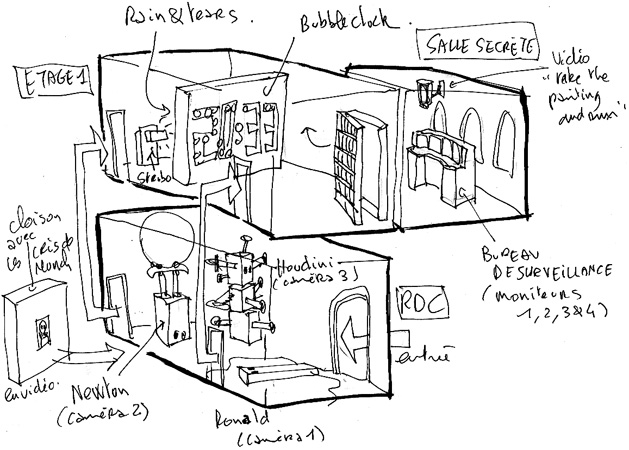 Rain & tears.
Bubble clock.
SALLE SECRÈTE
ETAGE 1
Vidéo
"take the
painting
and run"
Strobo
cloison
avec
les cris de
Munch
Houdini
(caméra 3)
RDC
BUREAU
DE SURVEILLANCE
(moniteurs
1, 2, 3 & 4)
entrée
en vidéo.
Newton
(caméra 2)
Ronald
(caméra 1)